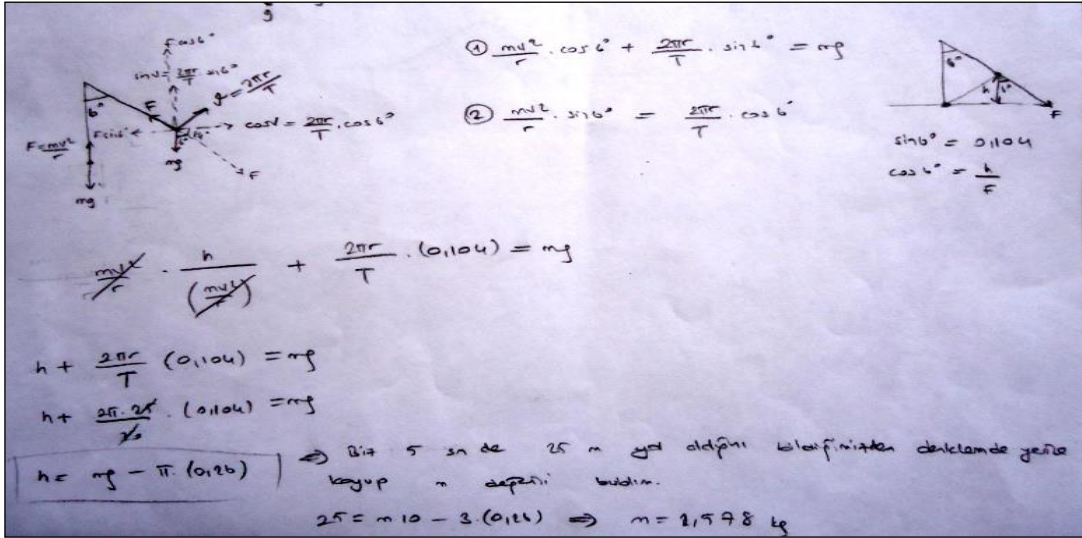 g
F cos6°
sinV = 2πr/T . sin6°
V = 2πr/T
6°
F
F sin6°
cosV = 2πr/T . cos6°
F = mv²/r
mg
F
mg
① mv²/r . cos6° + 2πr/T . sin6° = mg
② mv²/r . sin6° = 2πr/T . cos6°
6°
h
6°
F
sin6° = 0,104
cos6° = h/F
mv²/r . h/(mv²/r) + 2πr/T . (0,104) = mg
h + 2πr/T (0,104) = mg
h + 2π.25/20 . (0,104) = mg
h = mg - π. (0,26)
⇒ Biz 5 sn de 25 m yol aldığını bildiğimizden denklemde yerine
koyup m değerini buldum.
25 = m10 - 3.(0,26) ⇒ m = 2,578 kg